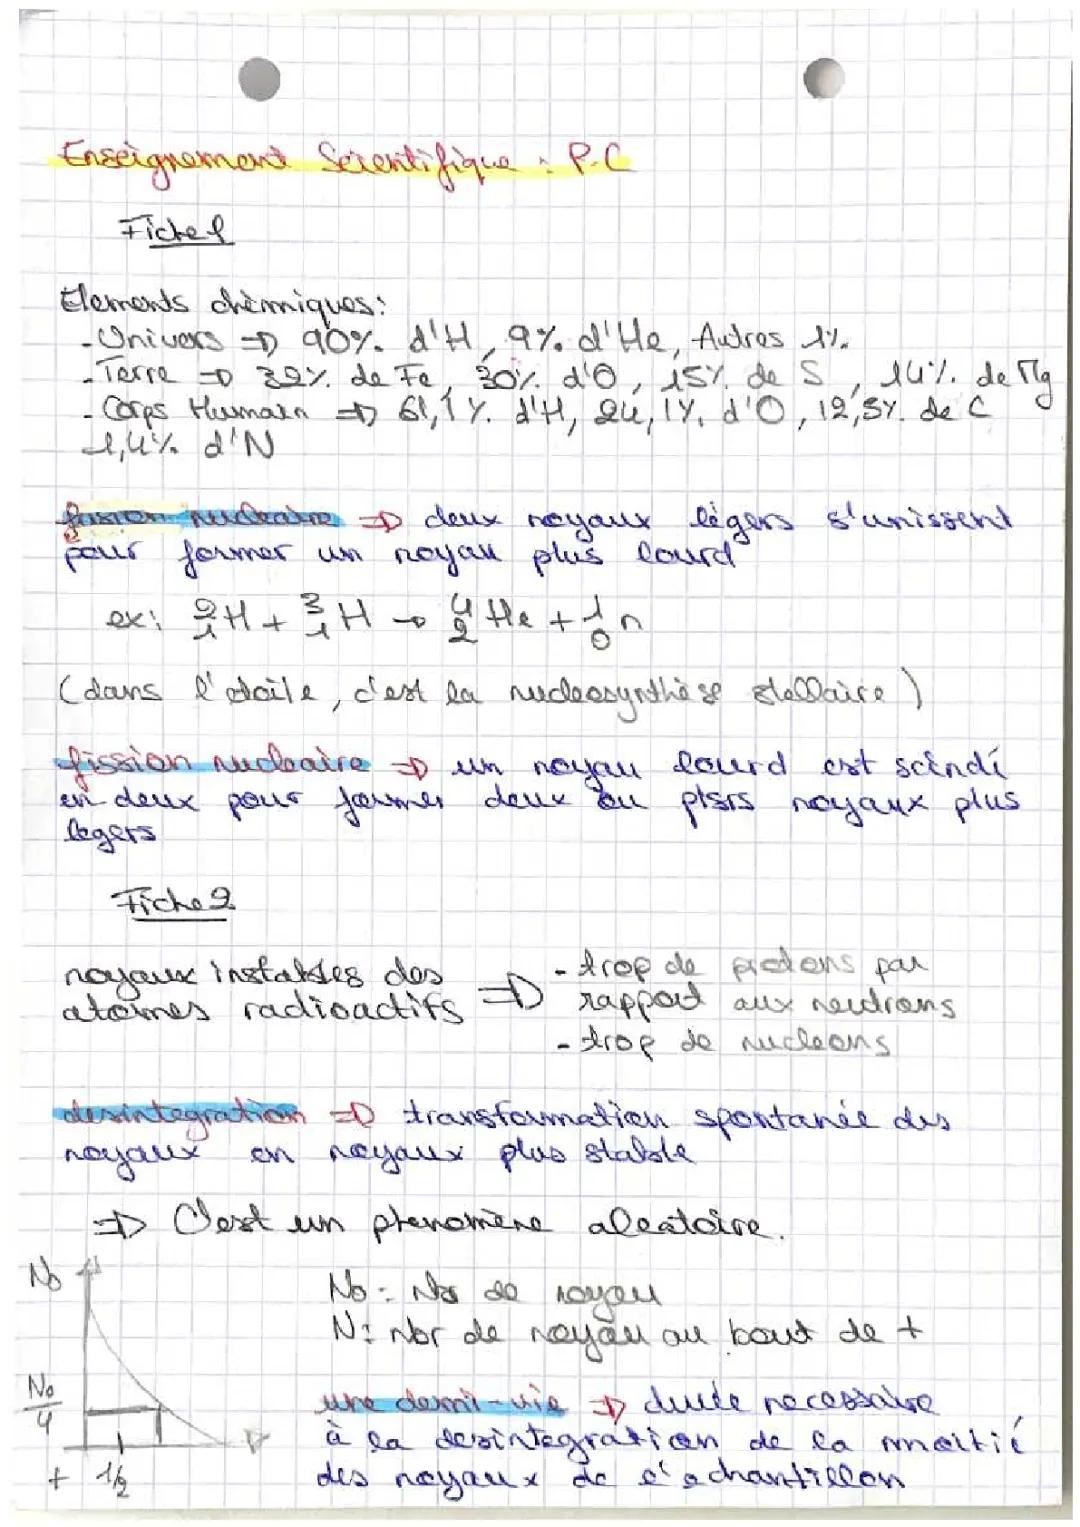 Enseignement Scientifique : P.C
Fiche 1
Elements chimiques:
- Univers => 90% d'H, 9% d'He, Autres 1%
- Terre => 32% de Fe, 30% d'O, 15% de S, 14% de Mg
- Corps Humain => 61,1%. d'H, 24,1%. d'O, 12,5%. de C
1,4% d'N
fusion nucleaire => deux noyaux légers s'unissent
pour former un noyau plus lourd
ex: ²₁H + ³₁H → ⁴₂He + ¹₀n
(dans l'étoile, c'est la nucleosynthèse stellaire)
fission nucleaire => un noyau lourd est scindé
en deux pour former deux ou plsrs noyaux plus
legers
Fiche 2
noyaux instables des
atomes radioactifs =>
- trop de protons par
rapport aux neutrons
- trop de nucleons
desintegration => transformation spontanée des
noyaux en noyaux plus stable
=> C'est un phenomène aleatoire.
No
No : Nbr de noyau
N : nbr de noyau au bout de t
No/4
t 1/2
une demi-vie => durée necessaire
à la desintegration de la moitié
des noyaux de l'echantillon